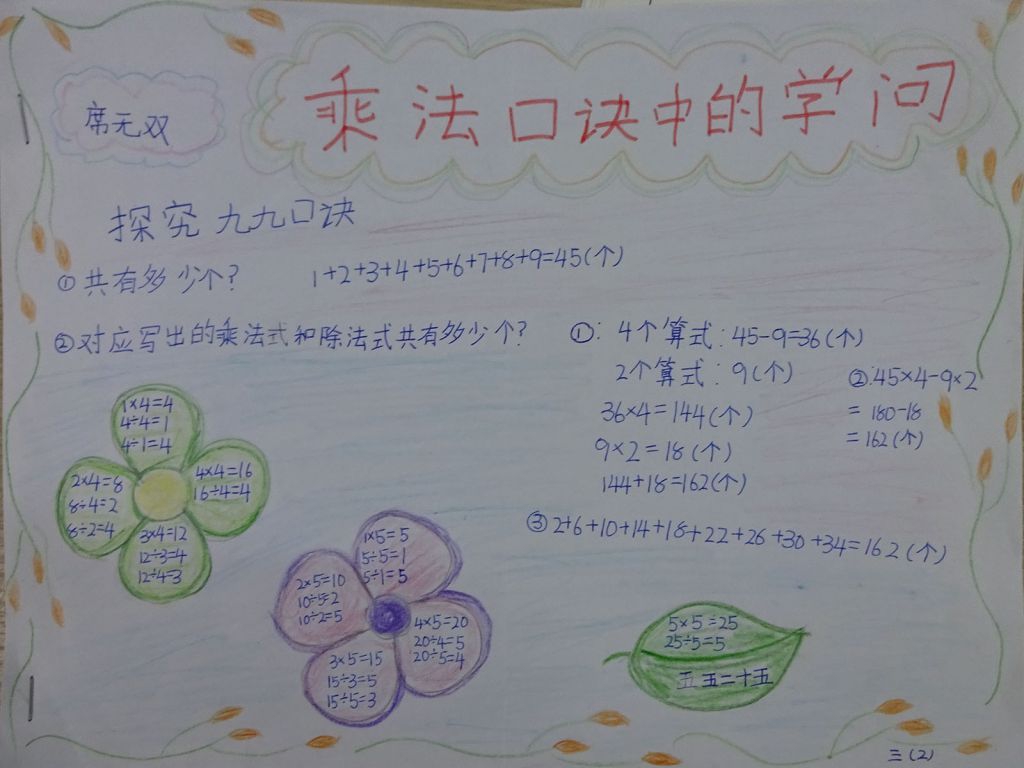 乘法口诀中的学问
席无双
探究九九口诀
①共有多少个? 1+2+3+4+5+6+7+8+9=45(个)
②对应写出的乘法式和除法式共有多少个?
①: 4个算式: 45-9=36(个)
2个算式: 9(个)
36×4=144(个)
9×2=18(个)
144+18=162(个)
②:45×4-9×2
=180-18
=162(个)
③2+6+10+14+18+22+26+30+34=162(个)
1×4=4
4÷4=1
4÷1=4
2×4=8
8÷4=2
8÷2=4
4×4=16
16÷4=4
3×4=12
12÷3=4
12÷4=3
1×5=5
5÷5=1
5÷1=5
2×5=10
10÷5=2
10÷2=5
4×5=20
20÷4=5
20÷5=4
3×5=15
15÷3=5
15÷5=3
5×5=25
25÷5=5
五五二十五
三(2)